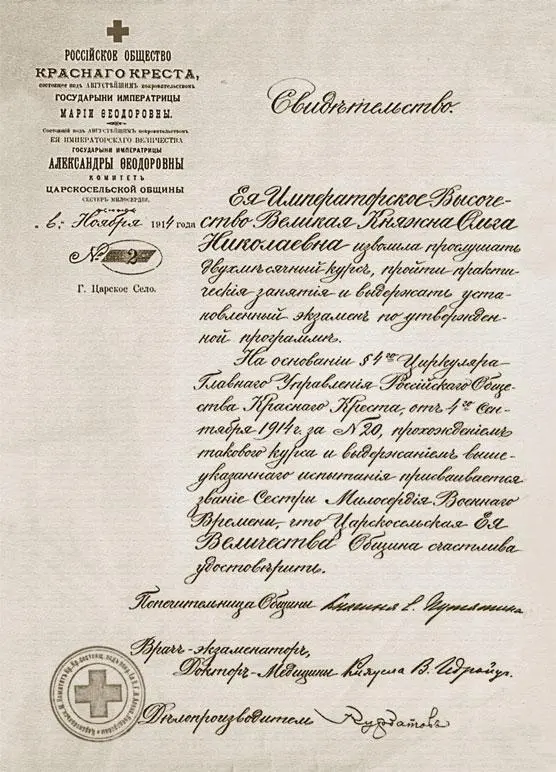 РОССІЙСКОЕ ОБЩЕСТВО
КРАСНАГО КРЕСТА,
состоящее подъ АВГУСТѢЙШИМЪ покровительствомъ
ГОСУДАРЫНИ ИМПЕРАТРИЦЫ
МАРІИ ѲЕОДОРОВНЫ.
Состоящій подъ АВГУСТѢЙШИМЪ покровительствомъ
ЕЯ ИМПЕРАТОРСКАГО ВЕЛИЧЕСТВА
ГОСУДАРЫНИ ИМПЕРАТРИЦЫ
АЛЕКСАНДРЫ ѲЕОДОРОВНЫ
КОМИТЕТЪ
ЦАРСКОСЕЛЬСКОЙ ОБЩИНЫ
СЕСТЕРЪ МИЛОСЕРДІЯ.
6. Ноября 1914 года
№ 2
Г. Царское Село.
Свидѣтельство.
Ея Императорское Высоче-
ство Великая Княжна Ольга
Николаевна изволила прослушать
двухмѣсячный курсъ, пройти практи-
ческія занятія и выдержать уста-
новленный экзаменъ по утвержден-
ной программѣ.
На основаніи § 4го Циркуляра
Главнаго Управленія Россійскаго Обще-
ства Краснаго Креста, отъ 4го Сен-
тября 1914 г. за №20, прохожденіемъ
таковаго курса и выдержаніемъ выше-
указаннаго испытанія присваивается
званіе Сестры Милосердія Военнаго
Времени, что Царскосельская Ея
Величества Община счастлива
удостовѣрить.
Попечительница Общины
Врачъ-экзаменаторъ,
Докторъ-Медицины Княжна В. Гедройцъ.
Дѣлопроизводитель